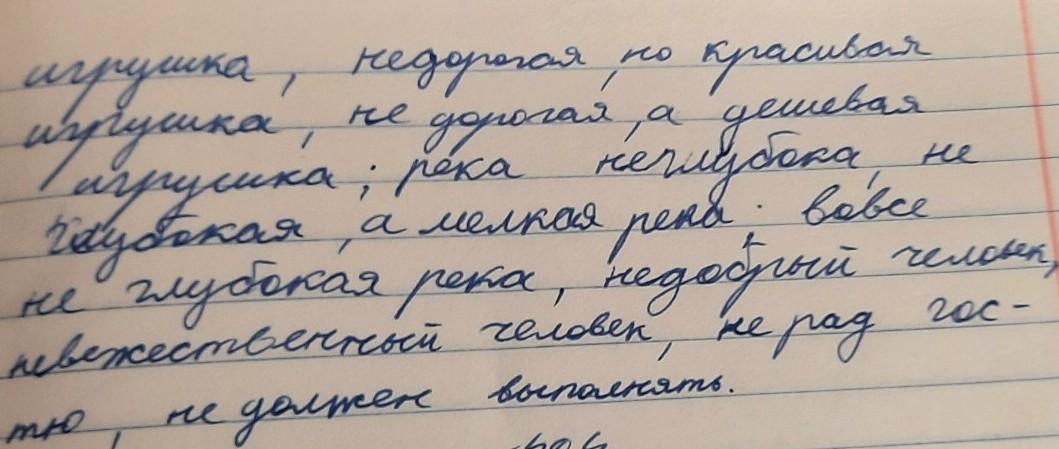 игрушка, недорогая, но красивая
игрушка, не дорогая, а дешевая
игрушка; река неглубока, не
глубокая, а мелкая река. вовсе
не глубокая река, недобрый человек,
невежественный человек, не рад гос-
тю, не должен выполнять.